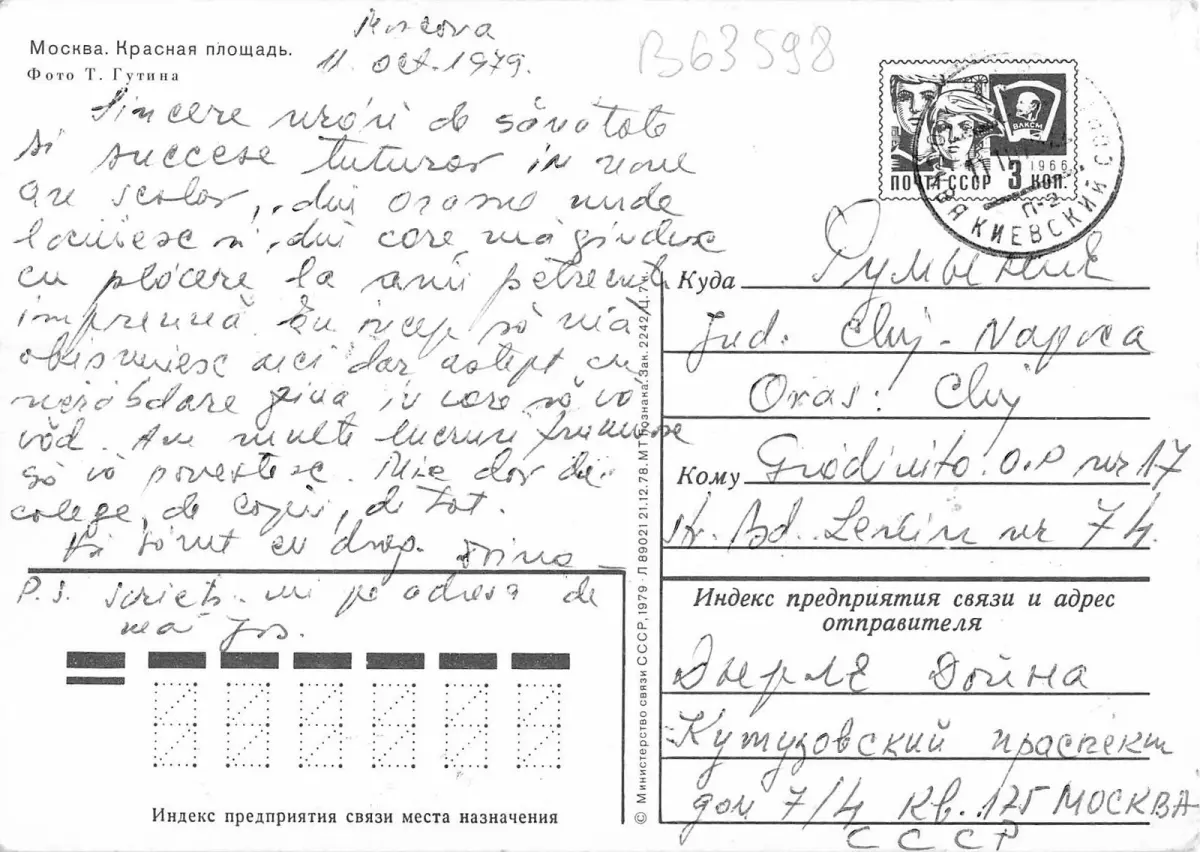 Москва. Красная площадь.
Фото Т. Гутина
Moscova
11 oct. 1979.
B63598
Sincere urări de sănătate
și succese tuturor în noul
an școlar, din orașul unde
locuiesc și din care mă gîndesc
cu plăcere la anii petrecuți
împreună. Eu încep să mă
obișnuiesc aici dar aștept cu
nerăbdare ziua în care să vă
văd. Am multe lucruri frumoase
să vă povestesc. Mie dor de
colege, de copii, de tot.
Vă sărut cu drag. Doina
P.S. Scrieți-mi pe adresa de
mai jos.
ВЛКСМ
1966
ПОЧТА СССР 3 КОП.
КИЕВСКИЙ
П-2
Куда Румыние
Jud: Cluj-Napoca
Oraș: Cluj
Кому Grădinița O.P nr 17
str. Bd. Lenin nr 74.
Индекс предприятия связи и адрес
отправителя
Дойна
Кутузовский праспект
дом 7/4 кв. 175 МОСКВА
СССР
Индекс предприятия связи места назначения
© Министерство связи СССР, 1979 · Л 89021 21.12.78. МТ Гознака. Зак. 2242/Ц. 7 к.